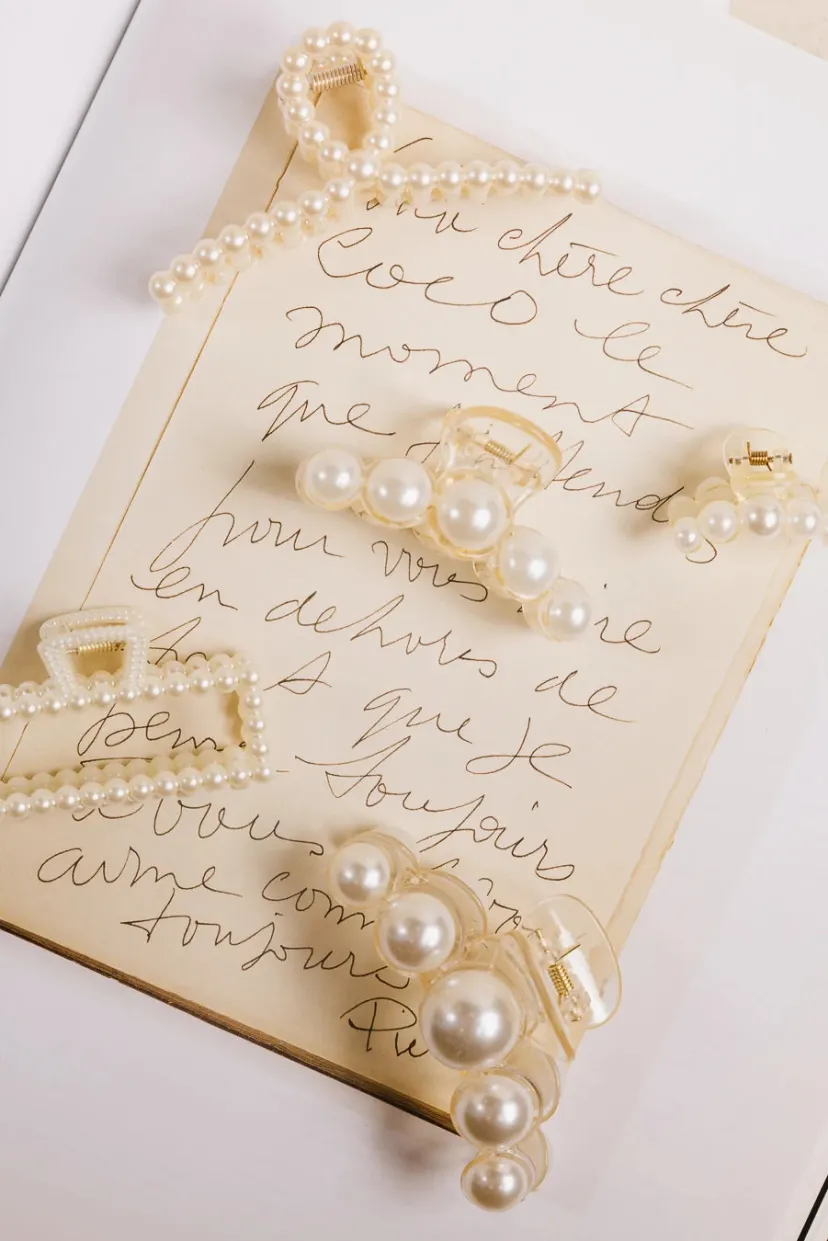 chère chère
Coco le
moment
que j'attends
pour vous
en dehors de
que je
toujours
a vous
aime com
toujours